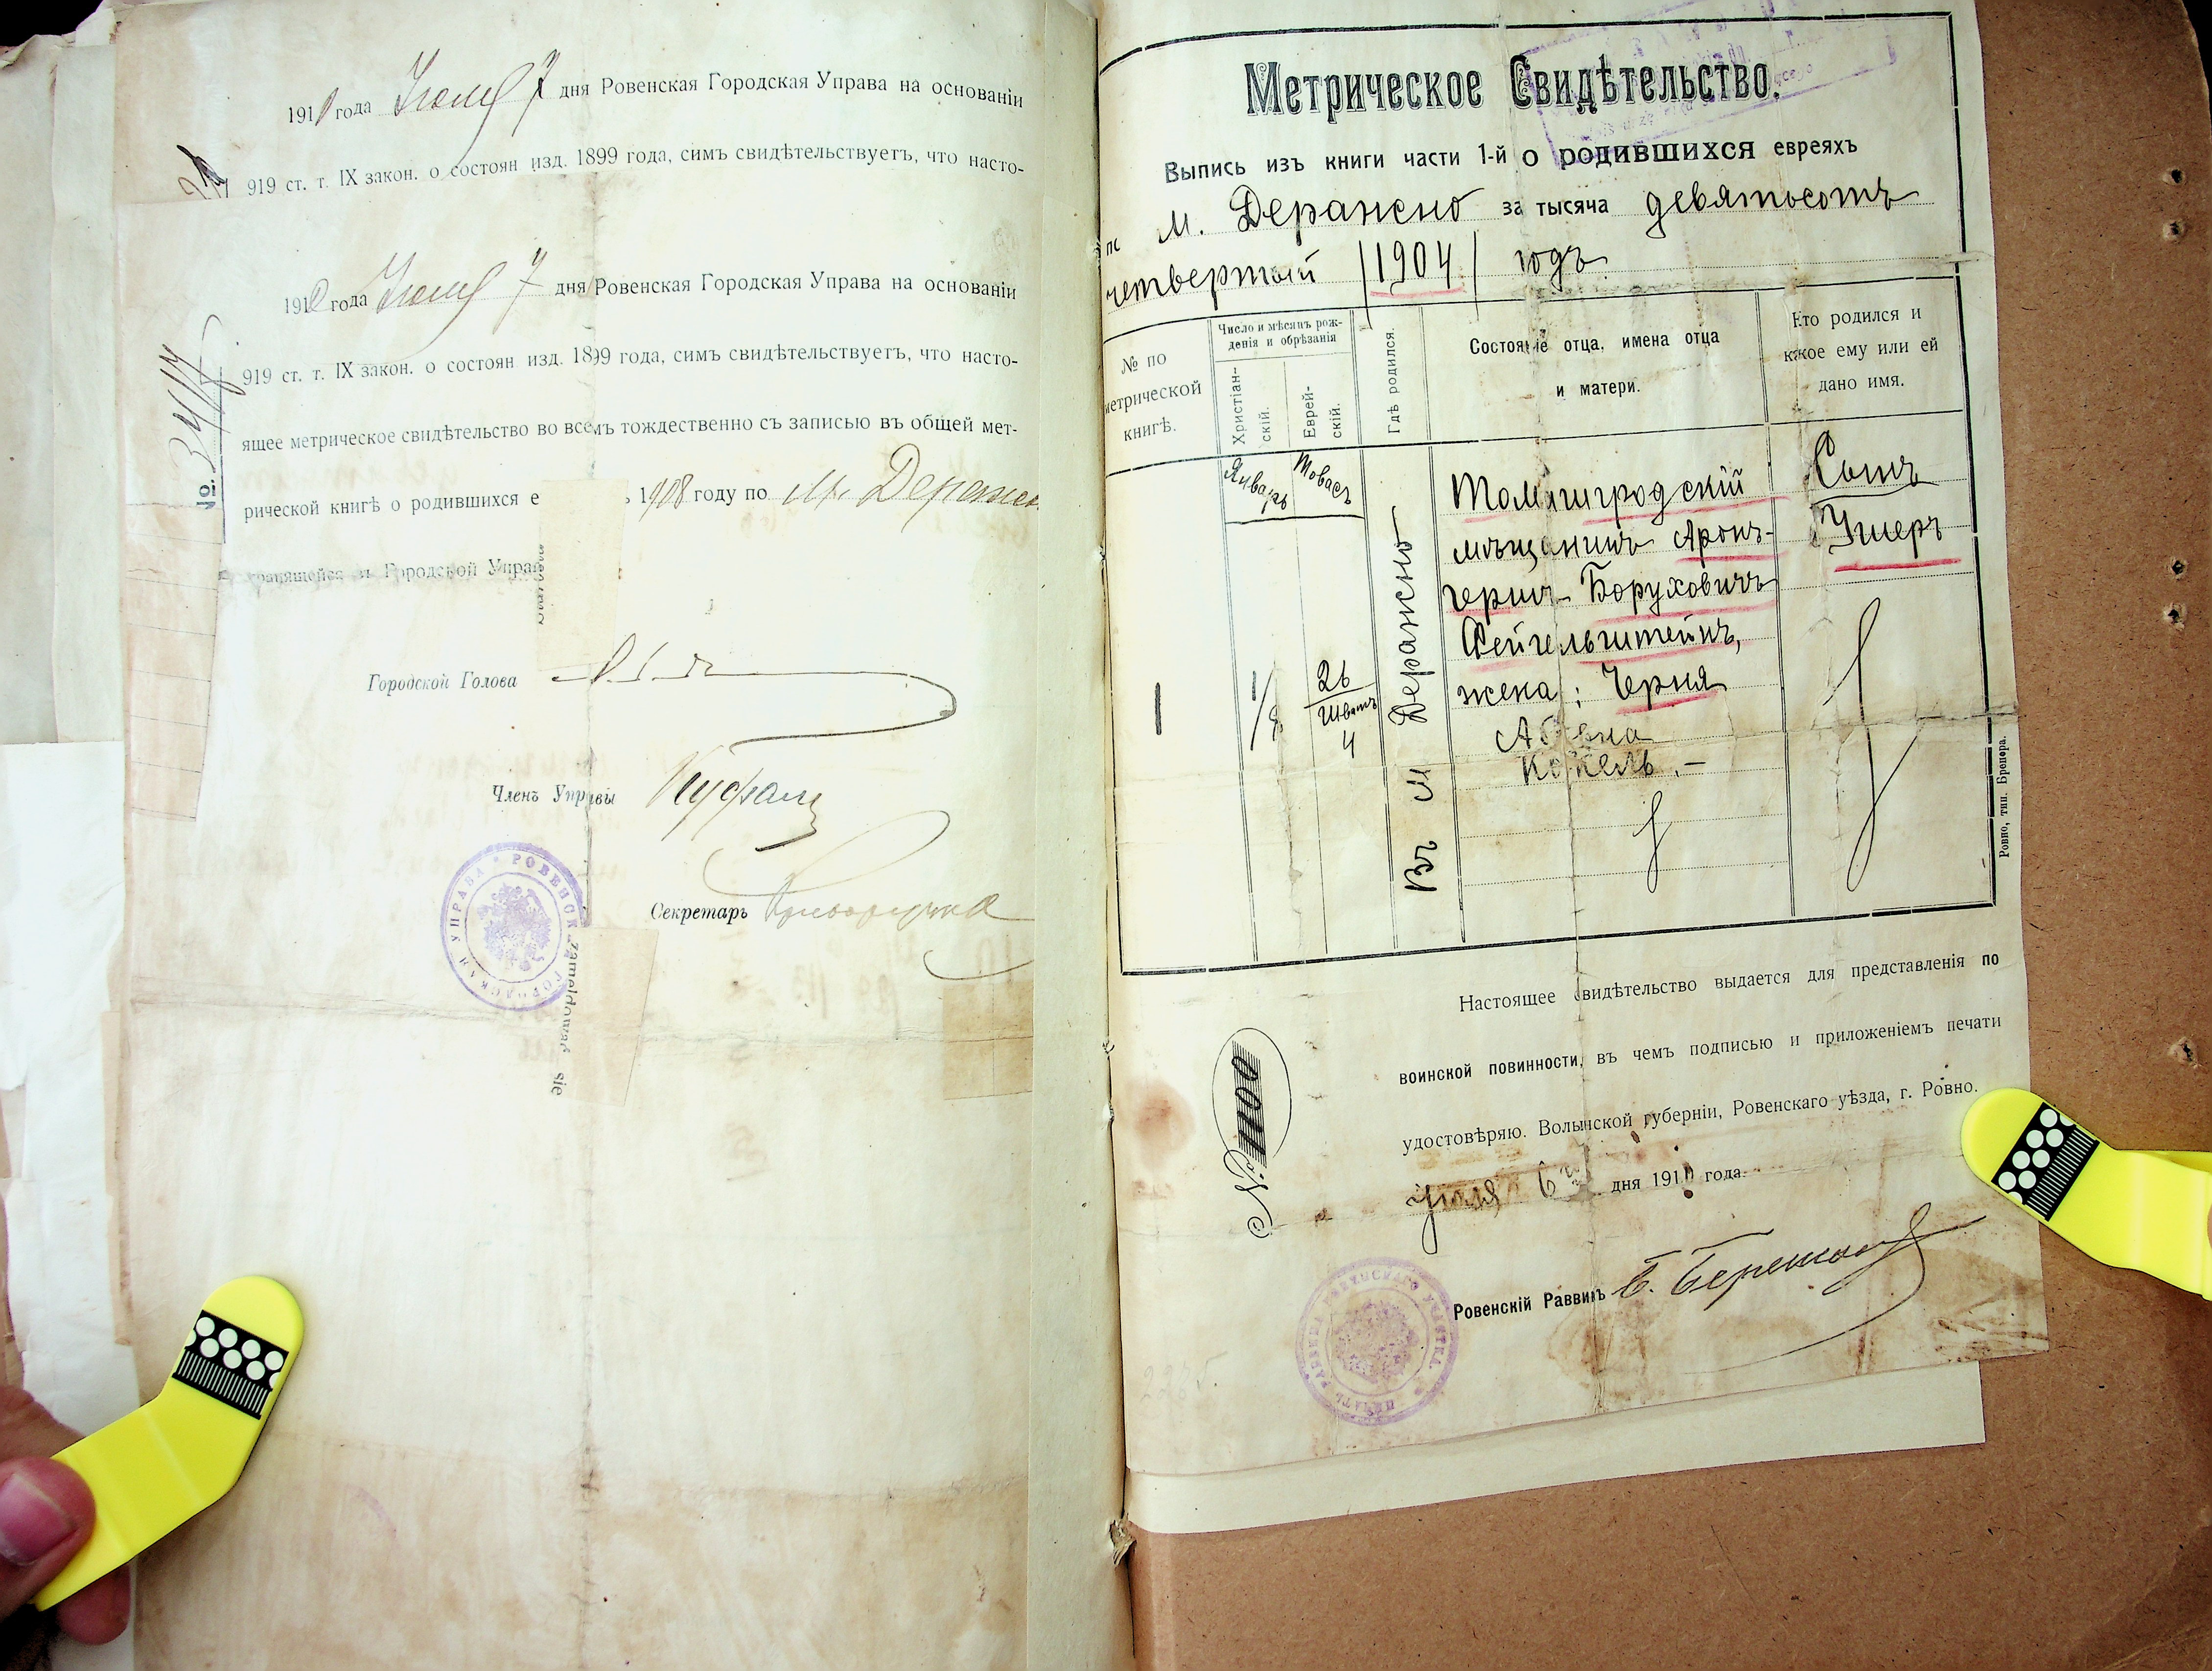 191 года Июля 7 дня Ровенская Городская Управа на основаніи
919 ст. т. IX закон. о состоян изд. 1899 года, симъ свидѣтельствуетъ, что насто-
1910 года Июля 7 дня Ровенская Городская Управа на основаніи
919 ст. т. IX закон. о состоян изд. 1899 года, симъ свидѣтельствуетъ, что насто-
ящее метрическое свидѣтельство во всемъ тождественно съ записью въ общей мет-
рической книгѣ о родившихся е 1908 году по м. Деражн
хранящейся и Городской Управ
№.
Городской Голова
Членъ Управы
Секретарь
РОВЕНСКАЯ ГОРОДСКАЯ УПРАВА
zameldował się
Метрическое Свидѣтельство.
Выпись изъ книги части 1-й о родившихся евреяхъ
по м. Деражно за тысяча девятьсотъ
четвертый /1904/ годъ
№ по метрической книгѣ.
Число и мѣсяцъ рож-
денія и обрѣзанія
Христіан-
скій.
Еврей-
скій.
Гдѣ родился.
Состояніе отца, имена отца
и матери.
Кто родился и
какое ему или ей
дано имя.
Январь
Товасъ
1
1/8
26
Шватъ
4
Въ м Деражно
Томашгродскій
мѣщанинъ Аронъ-
Гершъ Боруховичъ
Фейгельштейнъ,
жена: Черня
Кокель.-
Сынъ
Ушеръ
Ровно, тип. Бренера.
Настоящее свидѣтельство выдается для представленія по
воинской повинности, въ чемъ подписью и приложеніемъ печати
удостовѣряю. Волынской губерніи, Ровенскаго уѣзда, г. Ровно.
Июля 6 дня 1910 года.
№ 1100
Ровенскій Раввинъ